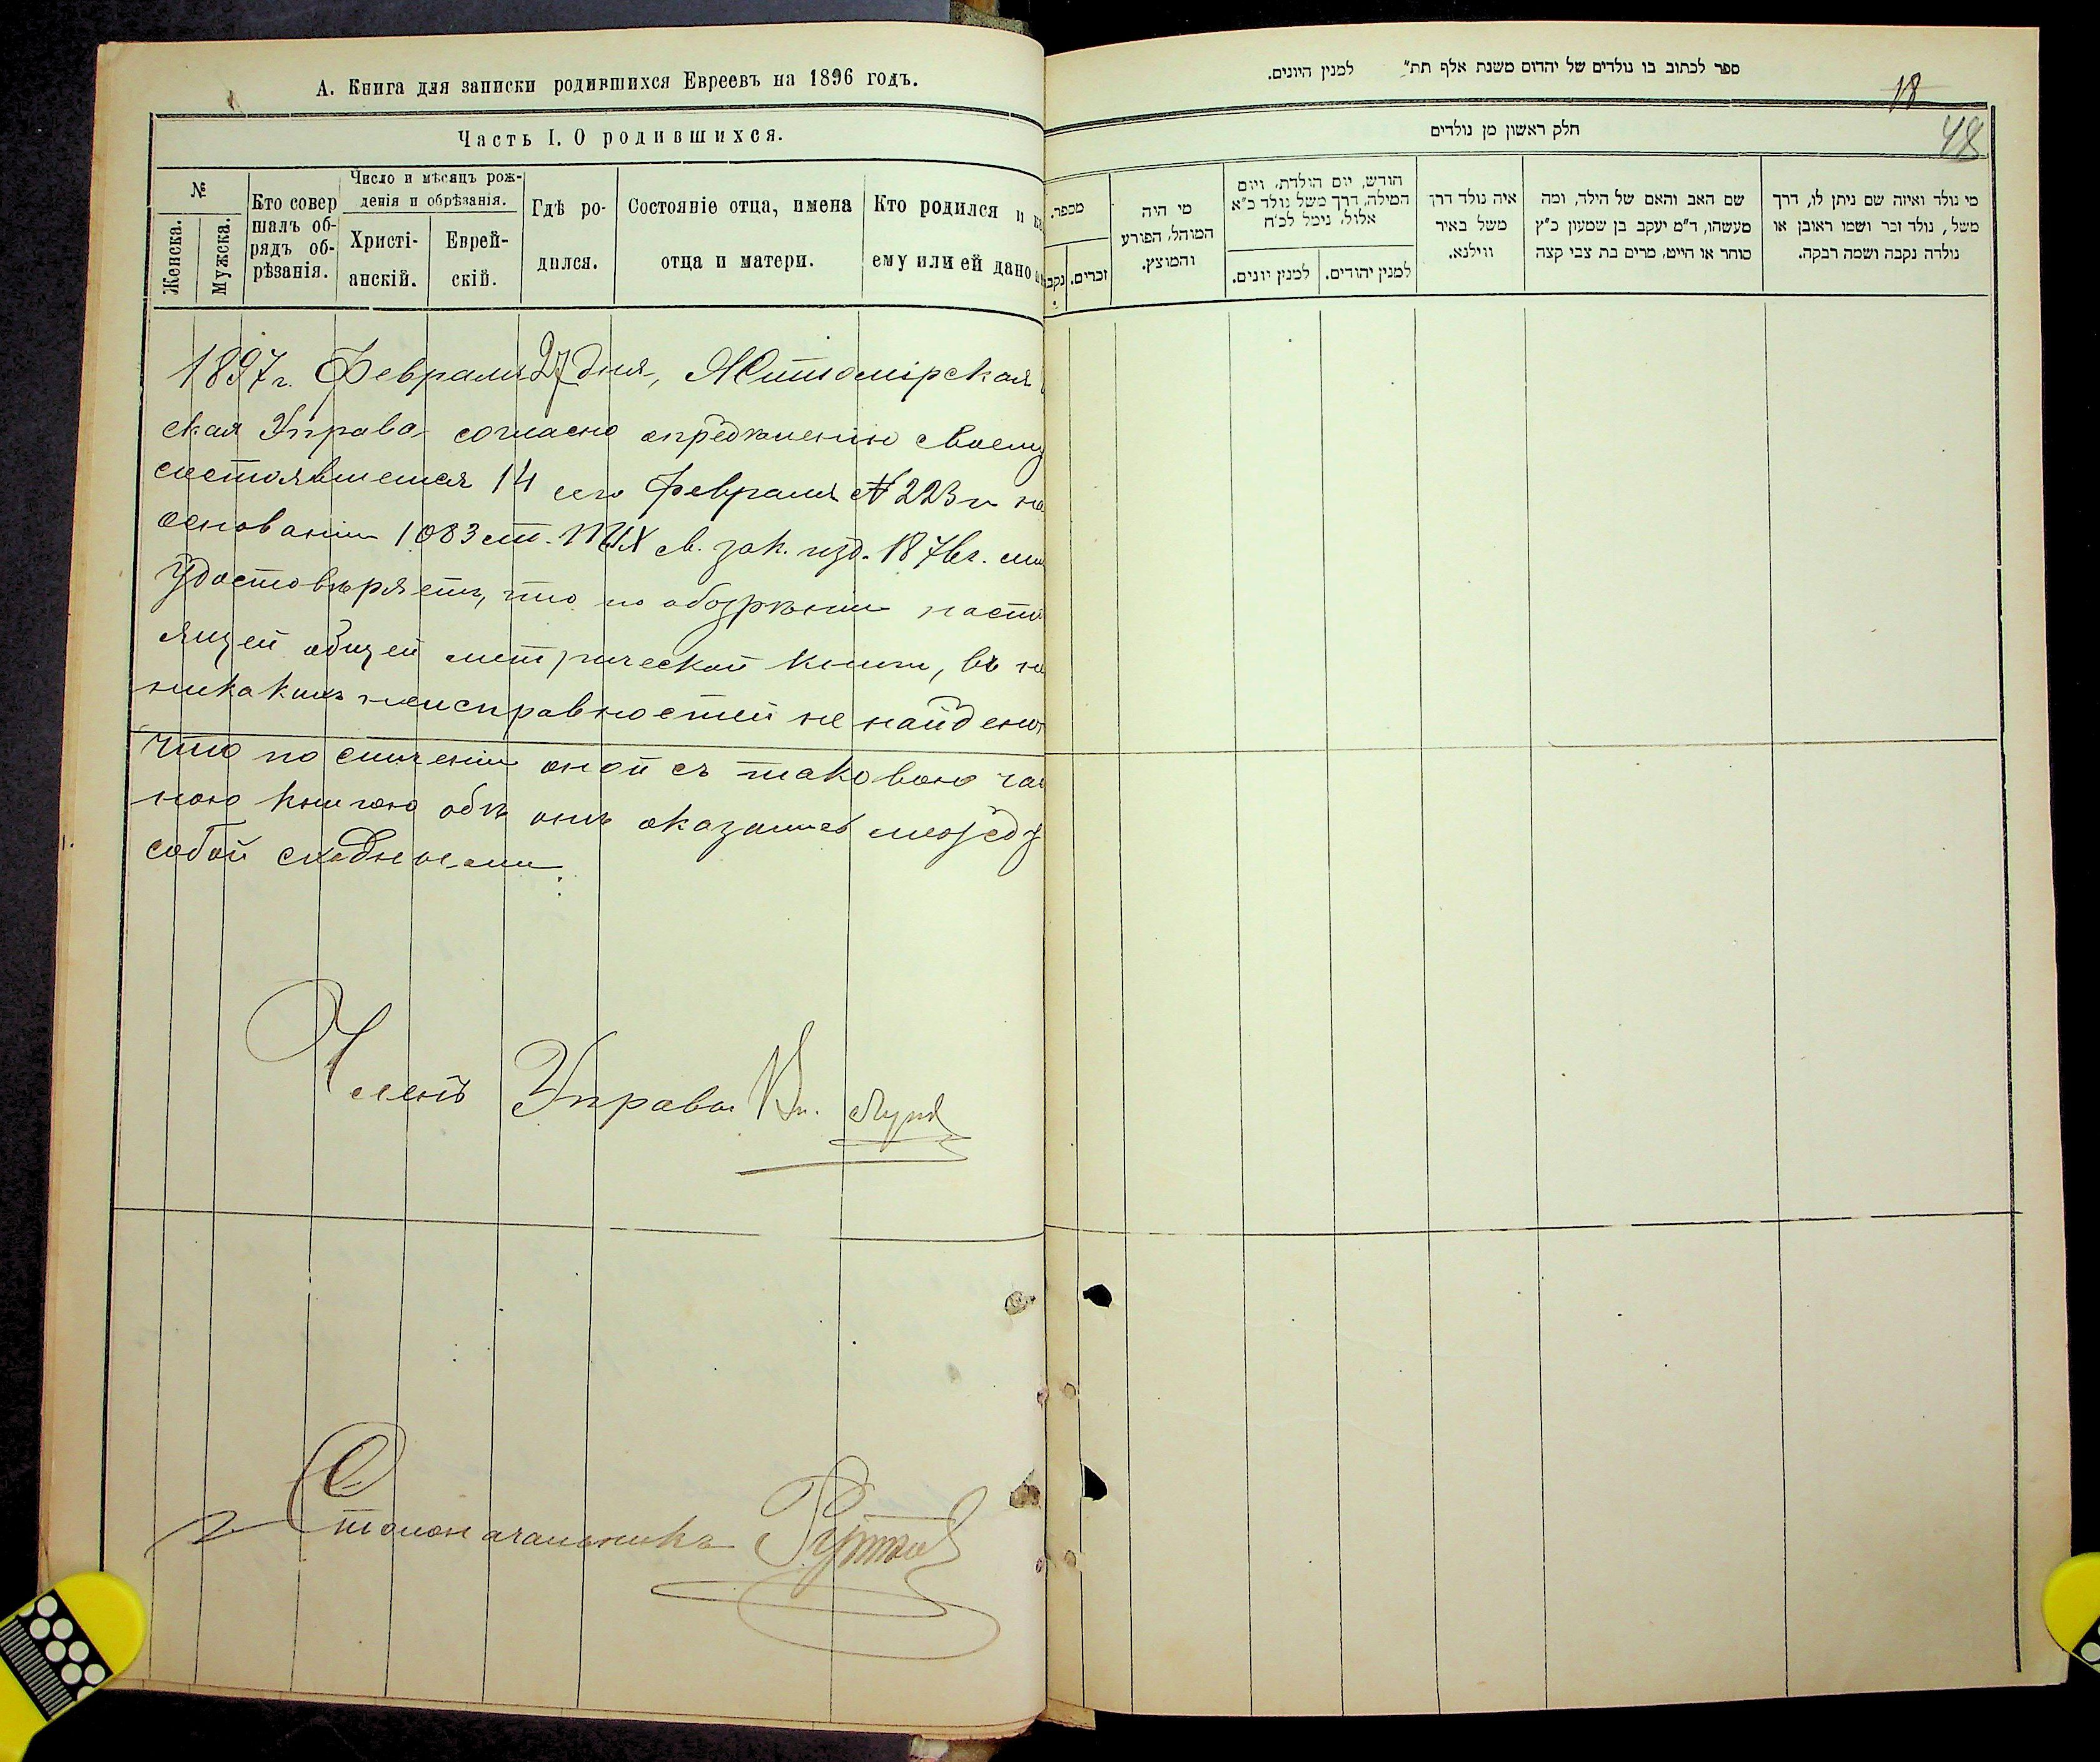 А. Книга для записки родившихся Евреевъ на 1896 годъ.
Часть I. О родившихся.
№
Женска.
Мужска.
Кто совер
шалъ об-
рядъ об-
рѣзанія.
Число и мѣсяцъ рож-
денія и обрѣзанія.
Христі-
анскій.
Еврей-
скій.
Гдѣ ро-
дился.
Состояніе отца, имена
отца и матери.
Кто родился и
ему или ей дано
1897 г. Февраля 27 дня, Житомірская
ская Управа согласно опредѣленію своему
состоявшемся 14 сего Февраля № 223 и на
основаніи 1083 ст. IX св. зак. изд. 1876 г.
удостовѣряетъ, что по обозрѣнію насто
ящей общей метрической книги, въ
никакихъ неисправностей не найдено
что по сличеніи оной съ таковою
ною книгою обѣ онѣ оказались между
собой сходными
Членъ Управы
Столоначальникъ
ספר לכתוב בו נולדים של יהדום משנת אלף תת״ למנין היונים.
18
48
חלק ראשון מן נולדים
מי נולד ואיזה שם ניתן לו, דרך
משל, נולד זכר ושמו ראובן או
נולדה נקבה ושמה רבקה.
שם האב והאם של הילד, ומה
מעשהו, ד״מ יעקב בן שמעון כ״ץ
סוחר או הייט, מרים בת צבי קצה
איה נולד דרך
משל באיר
ווילנא.
הודש, יום הולדת, ויום
המילה, דרך משל נולד כ״א
אלול, נימל לכ״ח
למנין יהודים.
למנין יונים.
מי היה
המוהל, הפורע
והמוצץ.
מספר.
זכרים.
נקב